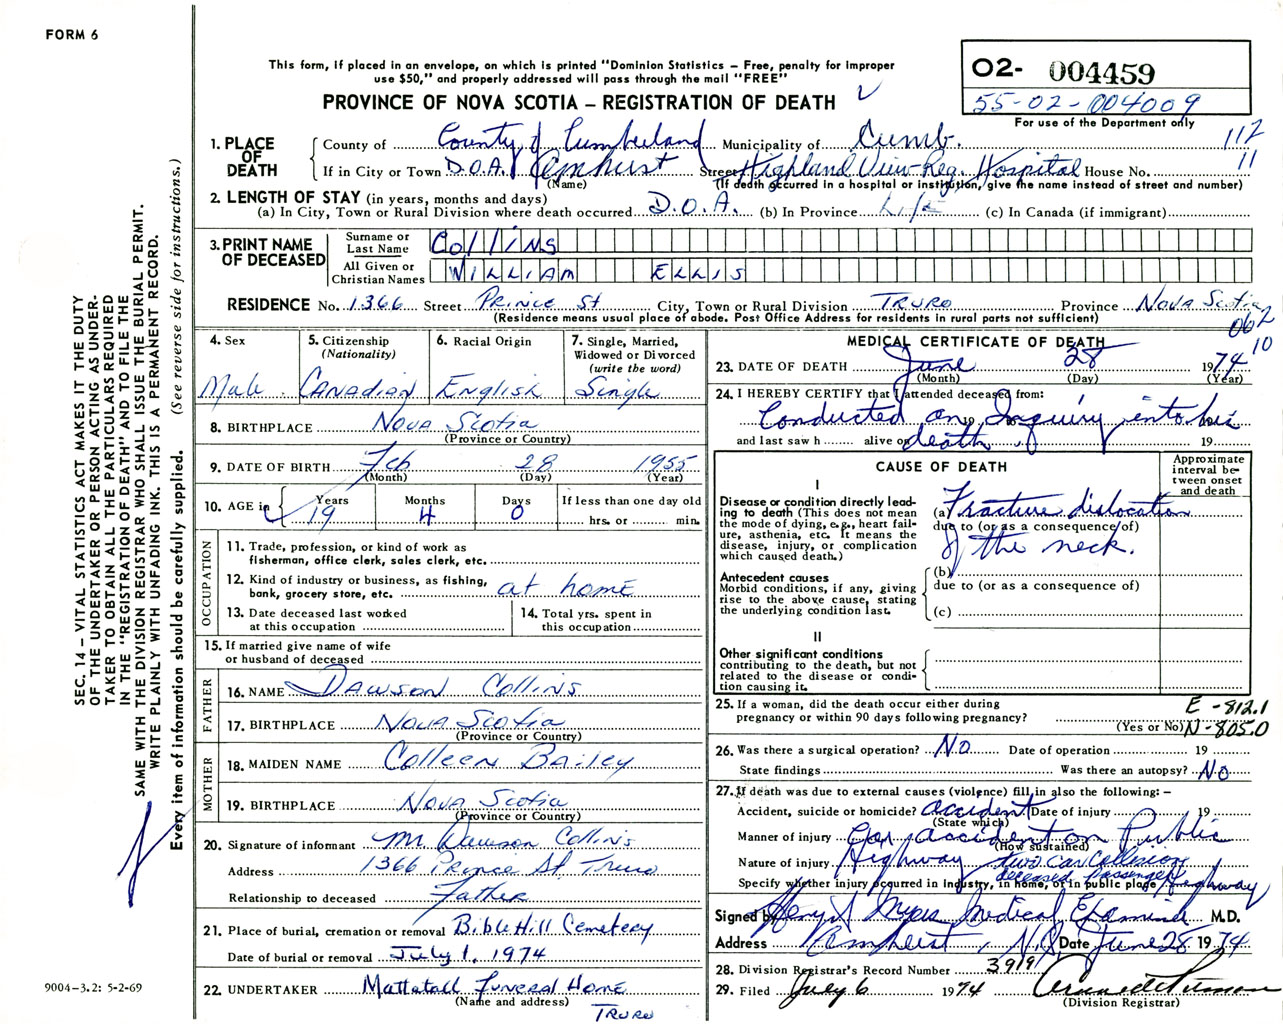 FORM 6
This form, if placed in an envelope, on which is printed "Dominion Statistics – Free, penalty for improper
use $50," and properly addressed will pass through the mail "FREE"
PROVINCE OF NOVA SCOTIA – REGISTRATION OF DEATH
02- 004459
55-02-004009
For use of the Department only
112
11
1. PLACE OF DEATH
County of County of Cumberland Municipality of Cumb.
If in City or Town D.O.A. Amherst Street Highland View Reg. Hospital House No.
(Name) (If death occurred in a hospital or institution, give the name instead of street and number)
2. LENGTH OF STAY (in years, months and days)
(a) In City, Town or Rural Division where death occurred D.O.A. (b) In Province Life (c) In Canada (if immigrant)
3. PRINT NAME OF DECEASED
Surname or Last Name Collins
All Given or Christian Names WILLIAM ELLIS
RESIDENCE No. 1366 Street Prince St City, Town or Rural Division TRURO Province Nova Scotia
(Residence means usual place of abode. Post Office Address for residents in rural parts not sufficient)
062
10
4. Sex
Male
5. Citizenship
(Nationality)
Canadian
6. Racial Origin
English
7. Single, Married,
Widowed or Divorced
(write the word)
Single
8. BIRTHPLACE Nova Scotia
(Province or Country)
9. DATE OF BIRTH Feb 28 1955
(Month) (Day) (Year)
10. AGE in
Years 19
Months 4
Days 0
If less than one day old
hrs. or min.
OCCUPATION
11. Trade, profession, or kind of work as
fisherman, office clerk, sales clerk, etc.
12. Kind of industry or business, as fishing,
bank, grocery store, etc. at home
13. Date deceased last worked
at this occupation
14. Total yrs. spent in
this occupation
15. If married give name of wife
or husband of deceased
FATHER
16. NAME Dawson Collins
17. BIRTHPLACE Nova Scotia
(Province or Country)
MOTHER
18. MAIDEN NAME Colleen Bailey
19. BIRTHPLACE Nova Scotia
(Province or Country)
20. Signature of informant Mr. Dawson Collins
Address 1366 Prince St. Truro
Relationship to deceased Father
21. Place of burial, cremation or removal Bible Hill Cemetery
Date of burial or removal July 1, 1974
22. UNDERTAKER Mattatall Funeral Home
(Name and address)
TRURO
MEDICAL CERTIFICATE OF DEATH
23. DATE OF DEATH June 28 1974
(Month) (Day) (Year)
24. I HEREBY CERTIFY that I attended deceased from:
Conducted an Inquiry into his
and last saw h alive on death. 19
CAUSE OF DEATH
Approximate
interval be-
tween onset
and death
I
Disease or condition directly lead-
ing to death (This does not mean
the mode of dying, e.g., heart fail-
ure, asthenia, etc. It means the
disease, injury, or complication
which caused death.)
(a) Fracture dislocation
due to (or as a consequence of)
of the neck.
Antecedent causes
Morbid conditions, if any, giving
rise to the above cause, stating
the underlying condition last.
(b)
due to (or as a consequence of)
(c)
II
Other significant conditions
contributing to the death, but not
related to the disease or condi-
tion causing it.
25. If a woman, did the death occur either during
pregnancy or within 90 days following pregnancy?
(Yes or No)
E -812.1
N-805.0
26. Was there a surgical operation? No Date of operation 19
State findings Was there an autopsy? No
27. If death was due to external causes (violence) fill in also the following: –
Accident, suicide or homicide? accident Date of injury 19
(State which)
Manner of injury Car accident on Public
(How sustained)
Nature of injury Highway two car Collision
deceased passenger
Specify whether injury occurred in Industry, in home, or in public place Highway
Signed by Medical Examiner M.D.
Address Amherst, N.S. Date June 28 1974
28. Division Registrar's Record Number 3919
29. Filed July 6 1974
(Division Registrar)
SEC. 14 – VITAL STATISTICS ACT MAKES IT THE DUTY
OF THE UNDERTAKER OR PERSON ACTING AS UNDER-
TAKER TO OBTAIN ALL THE PARTICULARS REQUIRED
IN THE "REGISTRATION OF DEATH" AND TO FILE THE
SAME WITH THE DIVISION REGISTRAR WHO SHALL ISSUE THE BURIAL PERMIT.
WRITE PLAINLY WITH UNFADING INK. THIS IS A PERMANENT RECORD.
Every item of information should be carefully supplied. (See reverse side for instructions.)
9004-3.2: 5-2-69